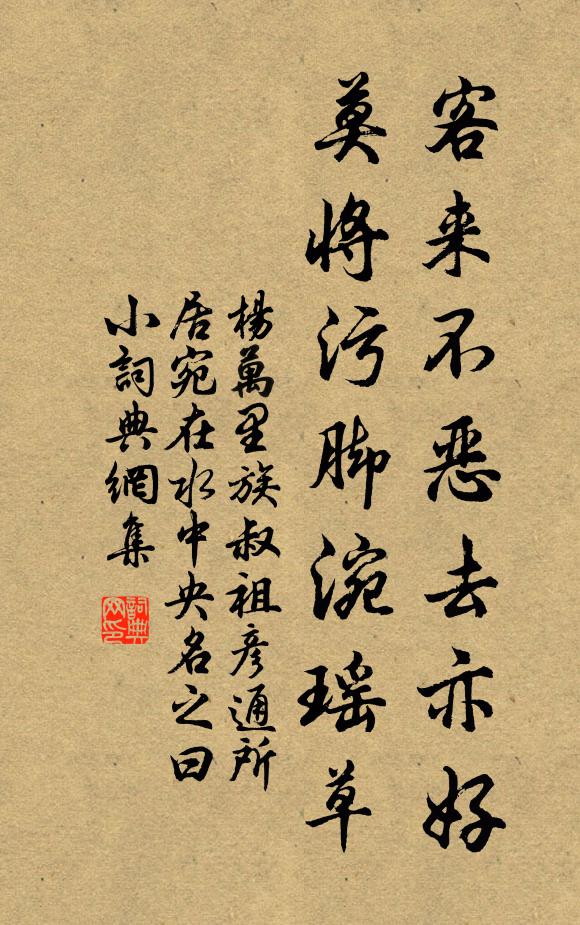 客来不恶去亦好
莫将污脚涴瑶草
楊萬里族叔祖彦通所
居宛在水中央名之曰
小詞典網集
詞典
网印